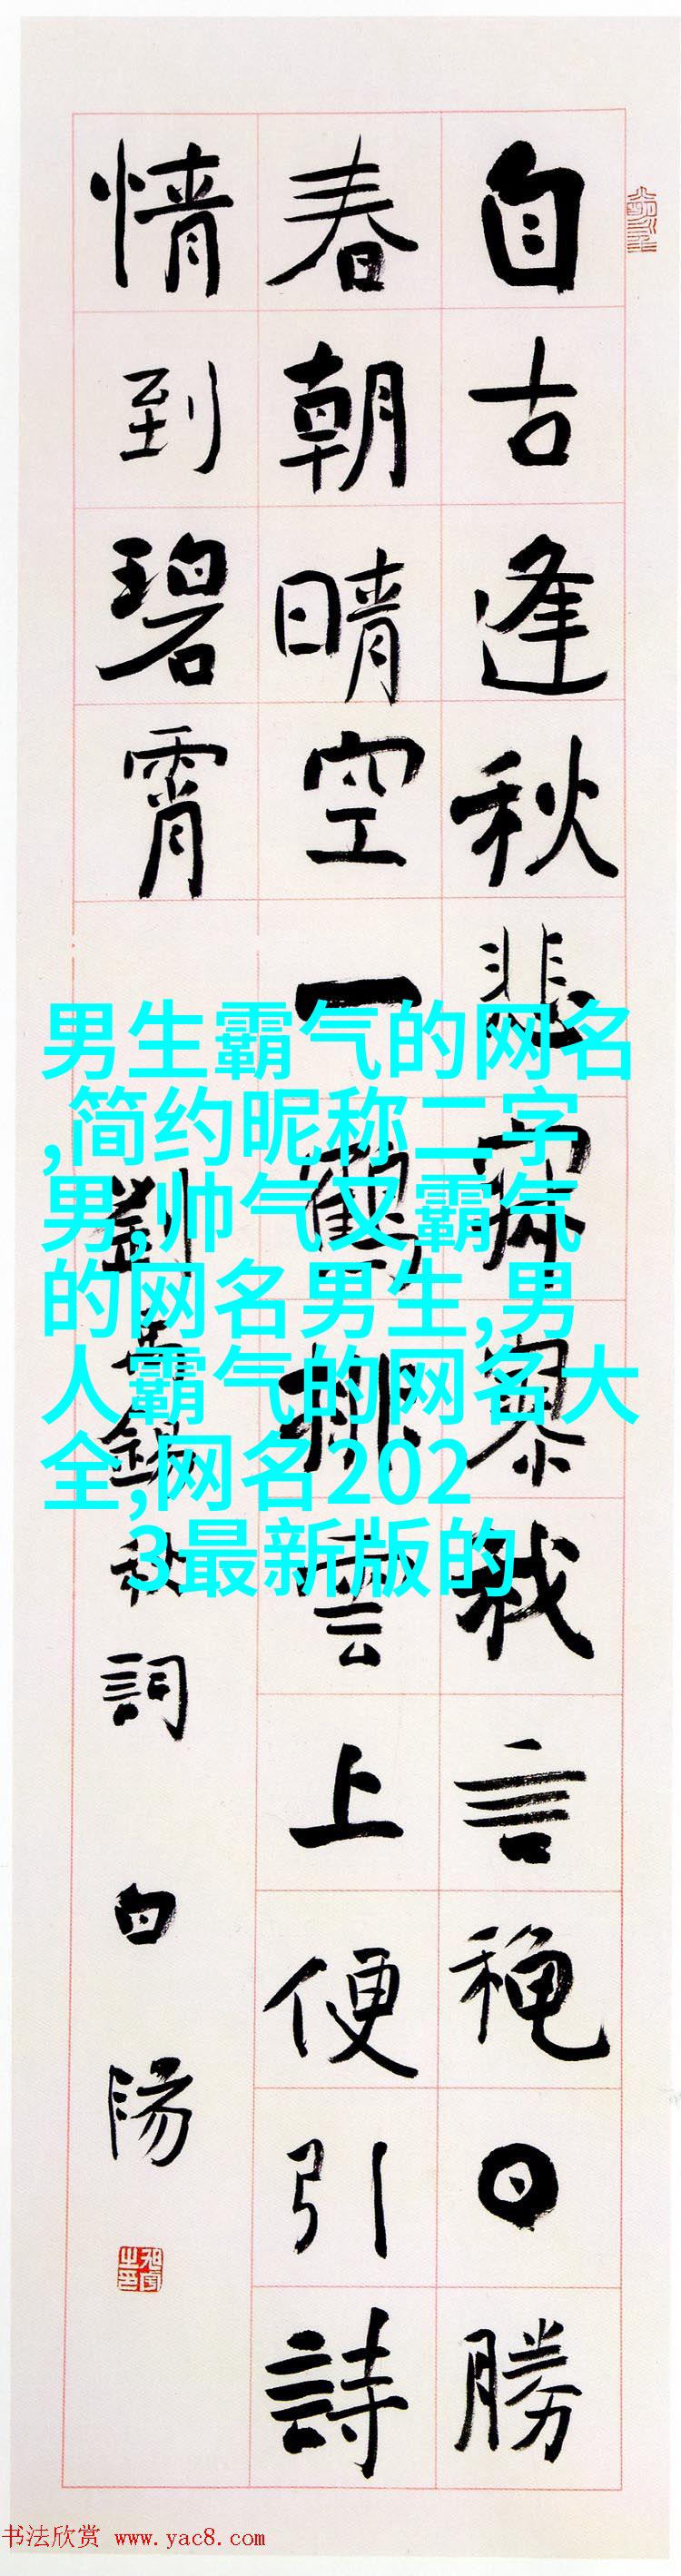 自古逢秋悲寂寥我言穐日勝
春朝晴空一鶴排雲上便引詩
情到碧霄
劉禹錫秋詞 白陽
男生霸气的网名
,简约昵称二字
男,帅气又霸气
的网名男生,男
人霸气的网名大
全,网名202
3最新版的
书法欣赏 www.yac8.com